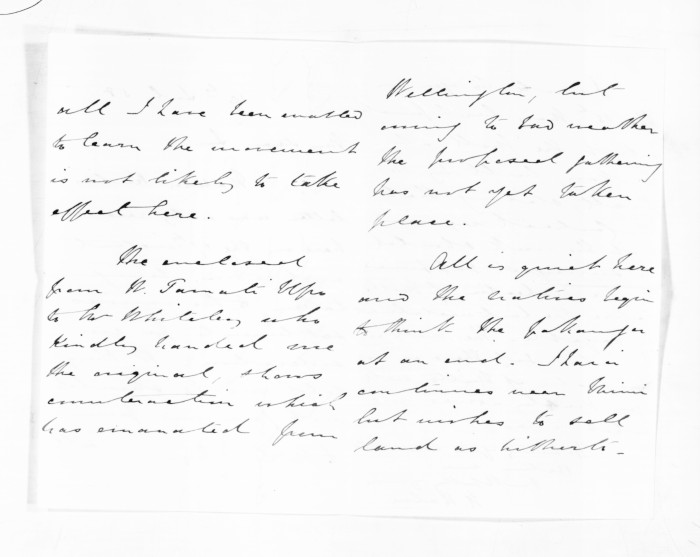 all I have been enabled
to learn the movement
is not likely to take
effect here.
The enclosed
from W. Tamati Ngapora
to Mr Whiteley who
kindly handed me
the original, shows
counteraction which
has emanated from
Wellington, but
owing to bad weather
the proposed gathering
has not yet taken
place.
All is quiet here
and the natives begin
to think the
at an end. Ihaia
continues near Mimi
but wishes to sell
land as hitherto -